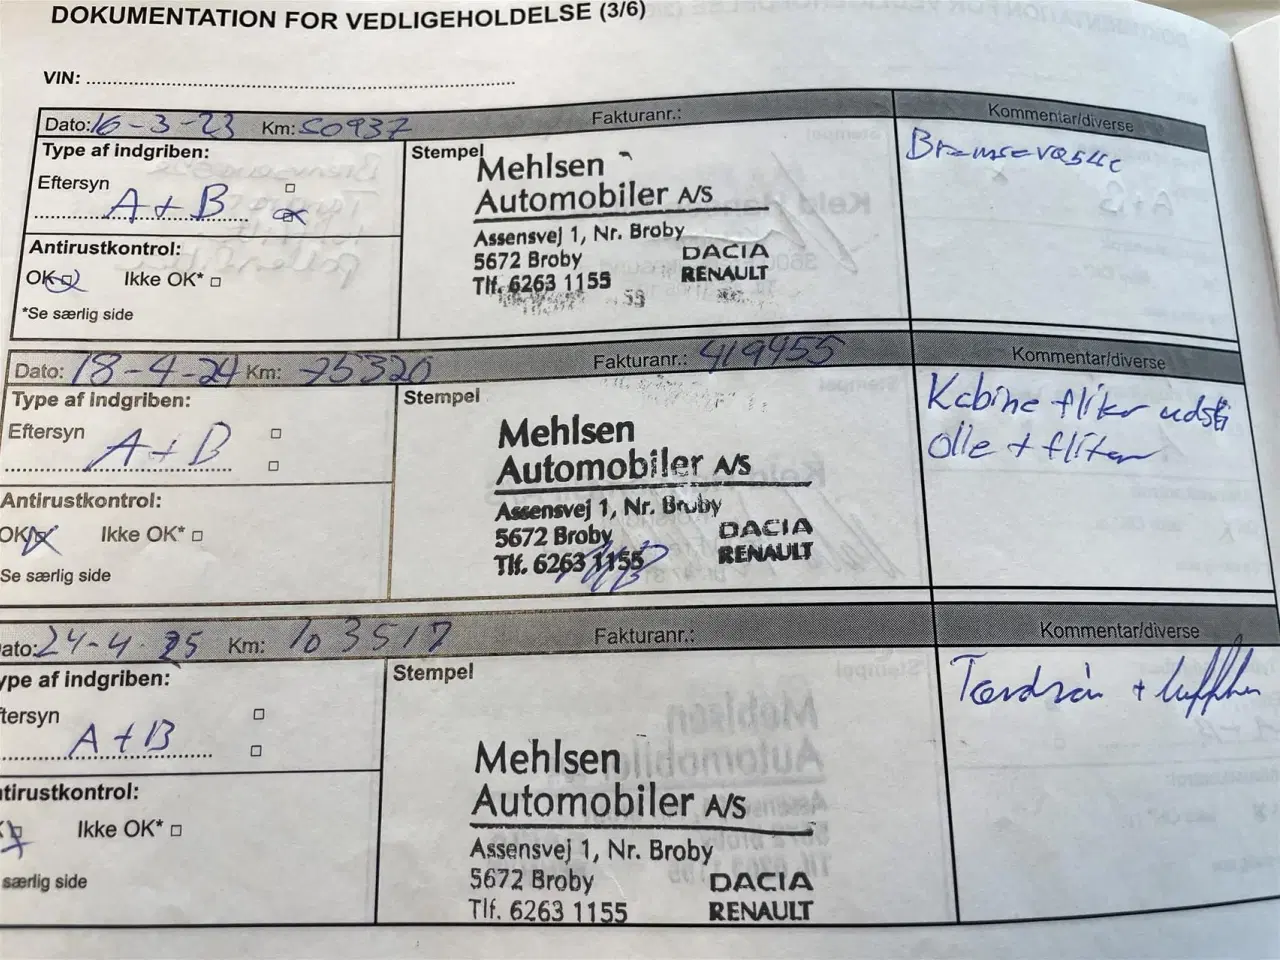 DOKUMENTATION FOR VEDLIGEHOLDELSE (3/6)
VIN:
Dato: 16-3-23 Km: 50937 Fakturanr.: Kommentar/diverse
Type af indgriben:
Stempel
Bremsevæske
Eftersyn
A+B
Mehlsen
Automobiler A/S
Assensvej 1, Nr. Broby
5672 Broby DACIA
Tlf. 6263 1155 RENAULT
Antirustkontrol:
OK Ikke OK*
*Se særlig side
Dato: 18-4-24 Km: 75320 Fakturanr.: 419455 Kommentar/diverse
Type af indgriben:
Stempel
Kabine filter
Olie + filter
Eftersyn
A+B
Mehlsen
Automobiler A/S
Assensvej 1, Nr. Broby
5672 Broby DACIA
Tlf. 6263 1155 RENAULT
Antirustkontrol:
OK Ikke OK*
Se særlig side
ato: 24-4-25 Km: 103517 Fakturanr.: Kommentar/diverse
ype af indgriben:
Stempel
Tandrem +
ftersyn
A+B
Mehlsen
Automobiler A/S
Assensvej 1, Nr. Broby
5672 Broby DACIA
Tlf. 6263 1155 RENAULT
tirustkontrol:
K Ikke OK*
særlig side